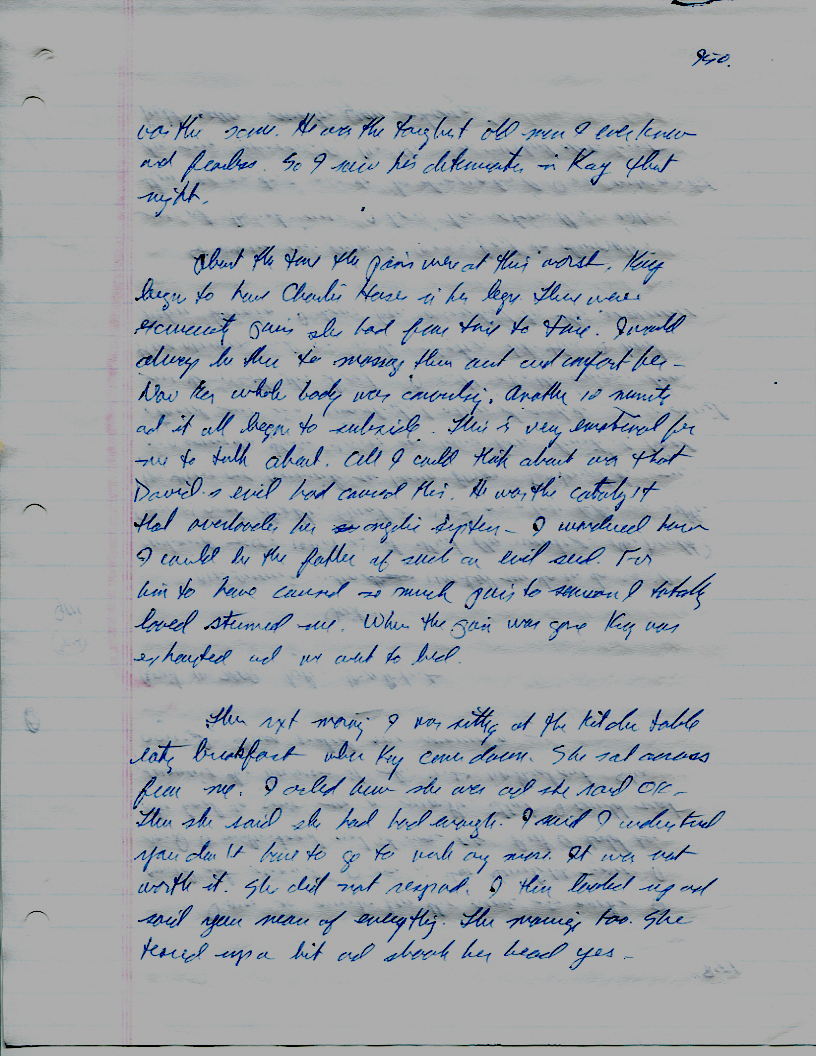 950.
was the same. He was the toughest old man I ever knew
and fearless. So I saw his determination in Kay that
night.
About the time the pains were at their worst. Kay
began to have Charlie Horses in her legs. These were
excruciating pains she had from time to time. I would
always be there to massage them out and comfort her -
Now her whole body was convulsing. Another 10 minutes
and it all began to subside. This is very emotional for
me to talk about. All I could think about was that
David's evil had caused this. He was the catalyst
that overloaded her angelic system - I wondered how
I could be the father of such an evil seed. For
him to have caused so much pain to someone I totally
loved stunned me. When the pain was gone Kay was
exhausted and we went to bed.
The next morning I was sitting at the kitchen table
eating breakfast when Kay came down. She sat across
from me. I asked how she was and she said OK -
Then she said she had had enough. I said I understand
you don't have to go to work any more. It was not
worth it. She did not respond. I then looked up and
said you mean of everything. The marriage too. She
teared up a bit and shook her head yes -